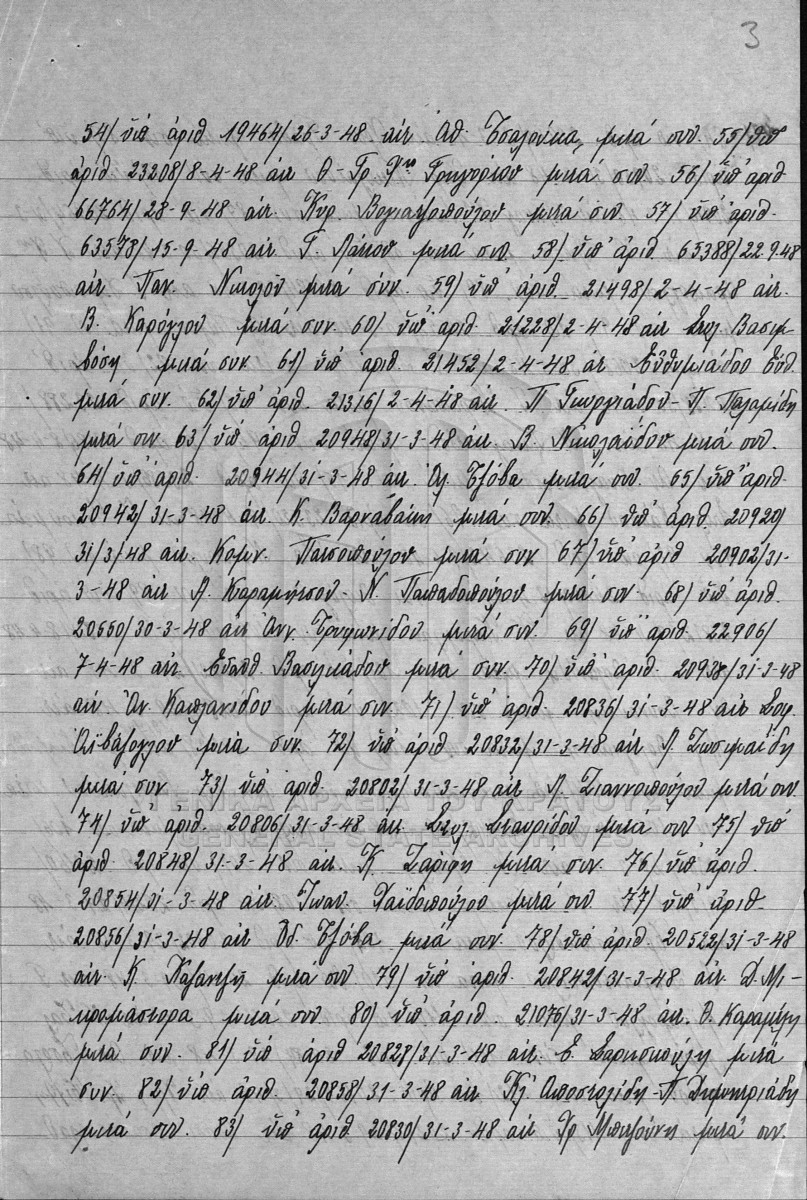 3
54/ ὑπ' ἀριθ 19464/26-3-48 αἰτ. Ἀθ. Τσαλούκα, μετά συν. 55/ ὑπ'
ἀριθ. 23208/8-4-48 αἰτ. Θ - Γρ. Γρηγορίου μετά συν 56/ ὑπ' ἀριθ
66764/28-9-48 αἰτ. Κυρ. Βογιατζοπούλου μετά συν. 57/ ὑπ' ἀριθ.
63573/15-9-48 αἰτ Γ. Λάππου μετά συν 58/ ὑπ' ἀριθ. 65388/22 9 48
αἰτ Παν. Νικολοῦ μετά συν. 59/ ὑπ' ἀριθ. 21498/2-4-48 αἰτ.
Β. Καρόγλου μετά συν. 60/ ὑπ' ἀριθ. 21228/2-4-48 αἰτ
μετά συν. 61/ ὑπ' ἀριθ. 21452/2-4-48 αἰτ Εὐθυμιάδου Εὐθ.
μετά συν. 62/ ὑπ' ἀριθ. 21316/2-4-48 αἰτ. Π Γεωργιάδου - Π. Παλαμίδη
μετά συν. 63/ ὑπ' ἀριθ 20948/31-3-48 αἰτ. Β. Νικολαΐδου μετά συν.
64/ ὑπ' ἀριθ. 20944/31-3-48 αἰτ. Ὀλ. Τζόβα μετά συν 65/ ὑπ' ἀριθ.
20942/31-3-48 αἰτ. Κ. Βαρναβάκη μετά συν. 66/ ὑπ' ἀριθ. 20920/
31/3/48 αἰτ. Κομν. μετά συν 67/ ὑπ' ἀριθ 20902/31-
3-48 αἰτ Α. - Ν. Παπαδοπούλου μετά συν. 68/ ὑπ' ἀριθ.
20550/30-3-48 αἰτ Ἀνν. Τρυφωνίδου μετά συν. 69/ ὑπ' ἀριθ. 22906/
7-4-48 αἰτ. Εὐσταθ. Βασιλειάδου μετά συν. 70/ ὑπ' ἀριθ. 20938/31-3-48
αἰτ. Ἀν. Καπλανίδου μετά συν 71/ ὑπ' ἀριθ. 20836/31-3-48 αἰτ Σοφ.
Ἀϊβάζογλου μετά συν. 72/ ὑπ' ἀριθ 20832/31-3-48 αἰτ Λ. Ζωσιμαΐδη
μετά συν 73/ ὑπ' ἀριθ. 20802/31-3-48 αἰτ Λ. Σιαννοπούλου μετά συν.
ΓΕΝΙΚΑ ΑΡΧΕΙΑ ΤΟΥ ΚΡΑΤΟΥΣ
74/ ὑπ' ἀριθ. 20806/31-3-48 αἰτ. Στυλ. Σταυρίδου μετά συν 75/ ὑπ'
GENERAL STATE ARCHIVES
ἀριθ. 20848/31-3-48 αἰτ. Κ. Ζαρίφη μετά συν. 76/ ὑπ' ἀριθ.
20854/31-3-48 αἰτ Ἰωαν. Χαϊδοπούλου μετά συν 77/ ὑπ' ἀριθ.
20856/31-3-48 αἰτ Ὀδ. Τζόβα μετά συν. 78/ ὑπ' ἀριθ. 20522/31-3-48
αἰτ. Κ. Καζαντζῆ μετά συν 79/ ὑπ' ἀριθ. 20842/31-3-48 αἰτ. Δ. Μι-
κρομάστορα μετά συν. 80/ ὑπ' ἀριθ. 21076/31-3-48 αἰτ. Θ. Καραμίχη
μετά συν. 81/ ὑπ' ἀριθ 20828/31-3-48 αἰτ. Ε. μετά
συν. 82/ ὑπ' ἀριθ. 20858/31-3-48 αἰτ Κλ. Ἀποστολίδη - Π. Δημητριάδη
μετά συν. 83/ ὑπ' ἀριθ 20830/31-3-48 αἰτ Χρ Μπιτζούνη μετά συν.